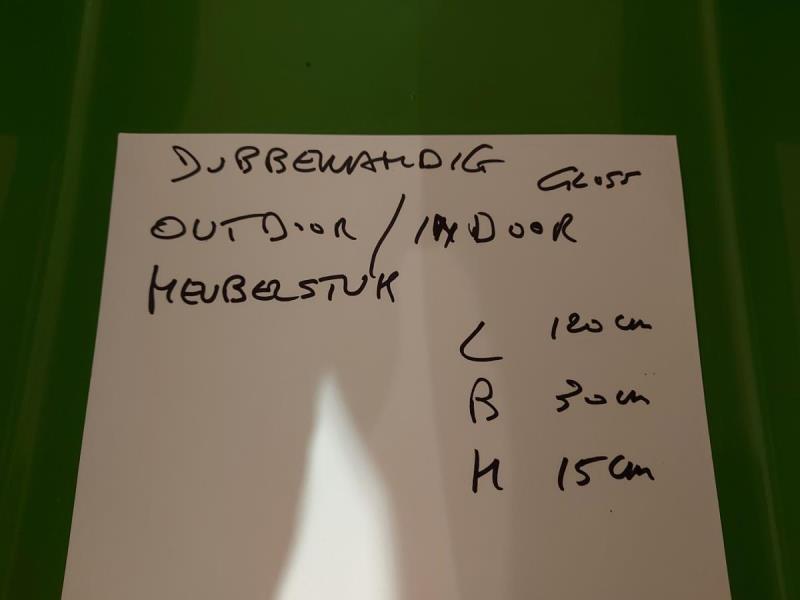 DUBBELWANDIG GLOSS
OUTDOOR / INDOOR
MEUBELSTUK
L 120 cm
B 30 cm
H 15 cm